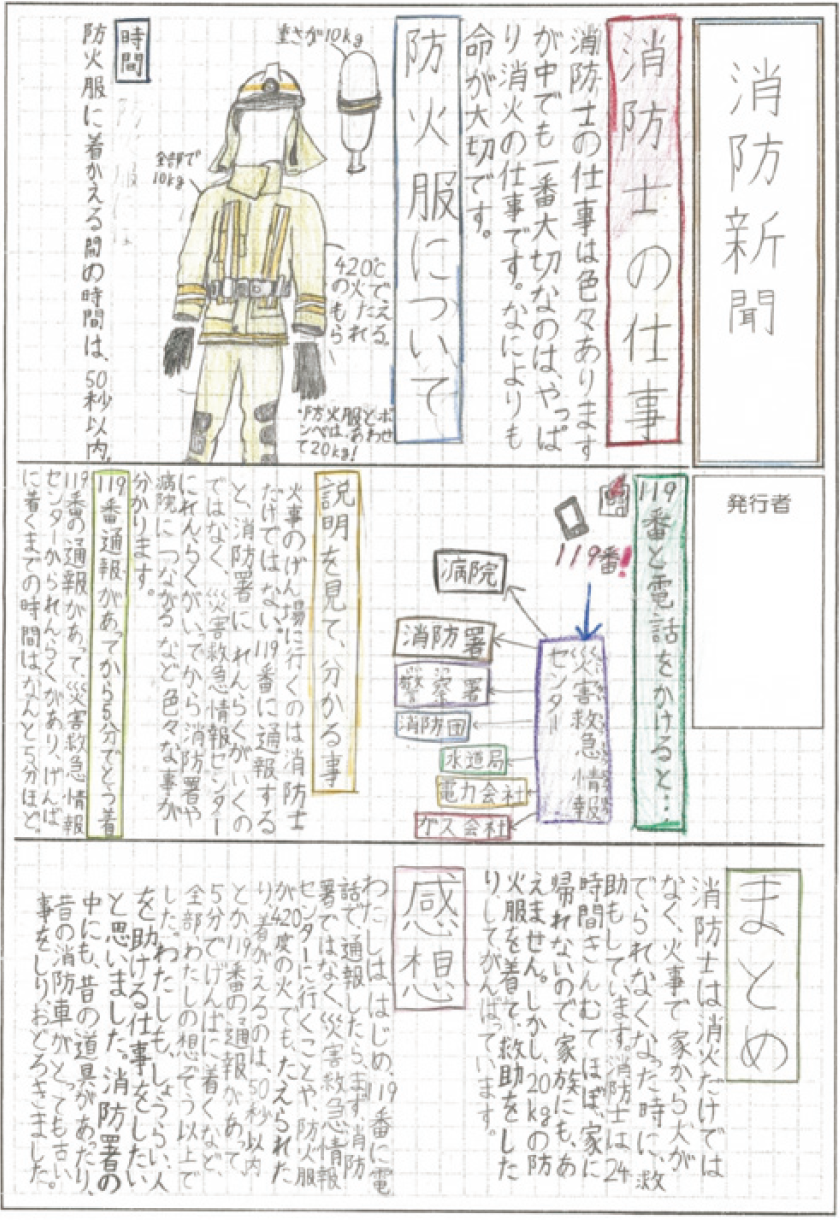 消防新聞
発行者
消防士の仕事
消防士の仕事は色々あります
が中でも一番大切なのは、やっぱ
り消火の仕事です。なによりも
命が大切です。
防火服について
重さが10kg
全部で
10kg
420℃
の火で
もたえ
られる。
・防火服とボ
ンベは、あわせ
て20kg!
時間
防火服に着かえる間の時間は、50秒以内。
119番と電話をかけると…
119番!
災害救急情報
センター
病院
消防署
警察署
消防団
水道局
電力会社
ガス会社
説明を見て、分かる事
火事のげん場に行くのは消防士
だけではない。119番に通報する
と、消防署にれんらくがいくの
ではなく、災害救急情報センター
にれんらくがいってから消防署や
病院につながるなど色々な事が
分かります。
119番通報があってから5分でとう着
119番の通報があって、災害救急情報
センターかられんらくがあり、げんば
に着くまでの時間はなんと5分ほど。
まとめ
消防士は消火だけでは
なく、火事で家から人が
でられなくなった時に、救
助もしています。消防士は24
時間きんむでほぼ、家に
帰れないので、家族にも、あ
えません。しかし、20kgの防
火服を着て、救助をした
り、してがんばっています。
感想
わたしは、はじめ、119番に電
話で通報したら、まず、消防
署ではなく災害救急情報
センターに行くことや、防火服
が420度の火でも、たえられた
り、着がえるのは、50秒以内
とか、119番の通報があって、
5分でげんばに着くなど、
全部わたしの想ぞう以上で
した。わたしも、しょうらい、人
を助ける仕事をしたい
と思いました。消防署の
中にも、昔の道具があったり、
昔の消防車がとっても古い
事をしり、おどろきました。